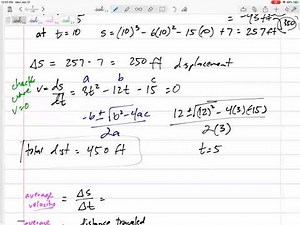 = -43 ft
350
at t=10 s = (10)³ - 6(10)² - 15(10) + 7 = 257 ft
ΔS = 257 - 7 = 250 ft displacement
check
when
v=0
a b c
v = ds/dt = 3t² - 12t - 15 = 0
-b ± √b² - 4ac / 2a
12 ± √(12)² - 4(3)(-15) / 2(3)
total dist = 450 ft
t=5
average
velocity = Δs/Δt =
average distance traveled